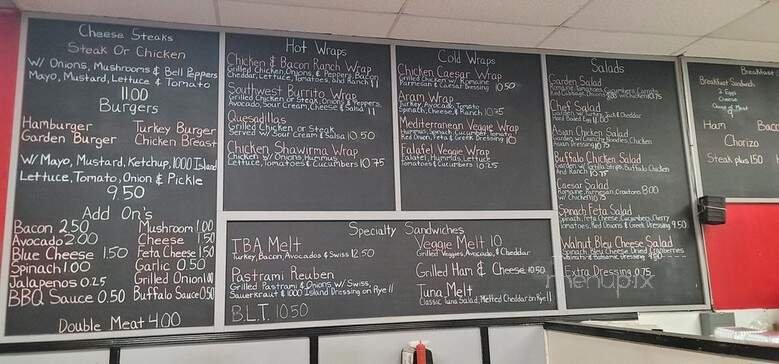 Cheese Steaks
Steak Or Chicken
W/ Onions, Mushrooms & Bell Peppers
Mayo, Mustard, Lettuce & Tomato
11.00
Burgers
Hamburger Turkey Burger
Garden Burger Chicken Breast
W/ Mayo, Mustard, Ketchup, 1000 Island
Lettuce, Tomato, Onion & Pickle
9.50
Add On's
Bacon 2.50 Mushroom 1.00
Avocado 2.00 Cheese 1.50
Blue Cheese 1.50 Feta Cheese 1.50
Spinach 1.00 Garlic 0.50
Jalapenos 0.25 Grilled Onion 1.00
BBQ Sauce 0.50 Buffalo Sauce 0.50
Double Meat 4.00
Hot Wraps
Chicken & Bacon Ranch Wrap
Grilled Chicken, Onions, & Peppers, Bacon
Cheddar, Lettuce, Tomatoes, and Ranch 11
Southwest Burrito Wrap
Grilled Chicken or Steak, Onions & Peppers,
Avocado, Sour Cream, Cheese & Salsa 11
Quesadillas
Grilled Chicken or Steak
Served W/ Sour Cream & Salsa 10.50
Chicken Shawirma Wrap
Chicken W/ Onions, Hummus,
Lettuce, Tomatoes & Cucumbers 10.75
Cold Wraps
Chicken Caesar Wrap
Grilled Chicken W/ Romaine
Parmesan & Caesar Dressing 10.50
Aram Wrap
Turkey, Avocado, Tomato
Spinach, Cheese, & Ranch 10.75
Mediterranean Veggie Wrap
Hummus, Spinach, Cucumber, Tomato
Red Onion, Feta & Greek Dressing 10
Falafel Veggie Wrap
Falafel, Hummus, Lettuce
Tomatoes & Cucumbers 10.25
Specialty Sandwiches
TBA Melt
Turkey, Bacon, Avocados & Swiss 12.50
Pastrami Reuben
Grilled Pastrami & Onions W/ Swiss,
Sauerkraut & 1000 Island Dressing on Rye 11
B.L.T. 10.50
Veggie Melt 10
Grilled Veggies, Avocado, & Cheddar
Grilled Ham & Cheese 10.50
Tuna Melt
Classic Tuna Salad, Melted Cheddar on Rye 11
Salads
Garden Salad
Romaine, Tomatoes, Cucumbers, Carrots
Red Cabbage, Onions W/ Chicken 10.75
Chef Salad
Garden W/ Turkey, Ham & Cheddar
Hard Boiled Egg 11.00
Asian Chicken Salad
Garden W/ Crunchy Noodles, Chicken
Asian Dressing 10.75
Buffalo Chicken Salad
Garden W/ Tortilla Strips, Buffalo Chicken
And Ranch 10.75
Caesar Salad
Romaine, Parmesan, Croutons 8.00
W/ Chicken 10.75
Spinach Feta Salad
Spinach, Feta Cheese, Cucumbers, Cherry
Tomatoes, Red Onions & Greek Dressing 9.50
Walnut Bleu Cheese Salad
Spinach, Bleu Cheese, Dried Cranberries
& Balsamic Dressing
Extra Dressing 0.75
Breakfast
Breakfast Sandwich
2 Eggs
Cheese
Choice of Meat
Ham Bacon
Chorizo
Steak plus 1.50
menupix